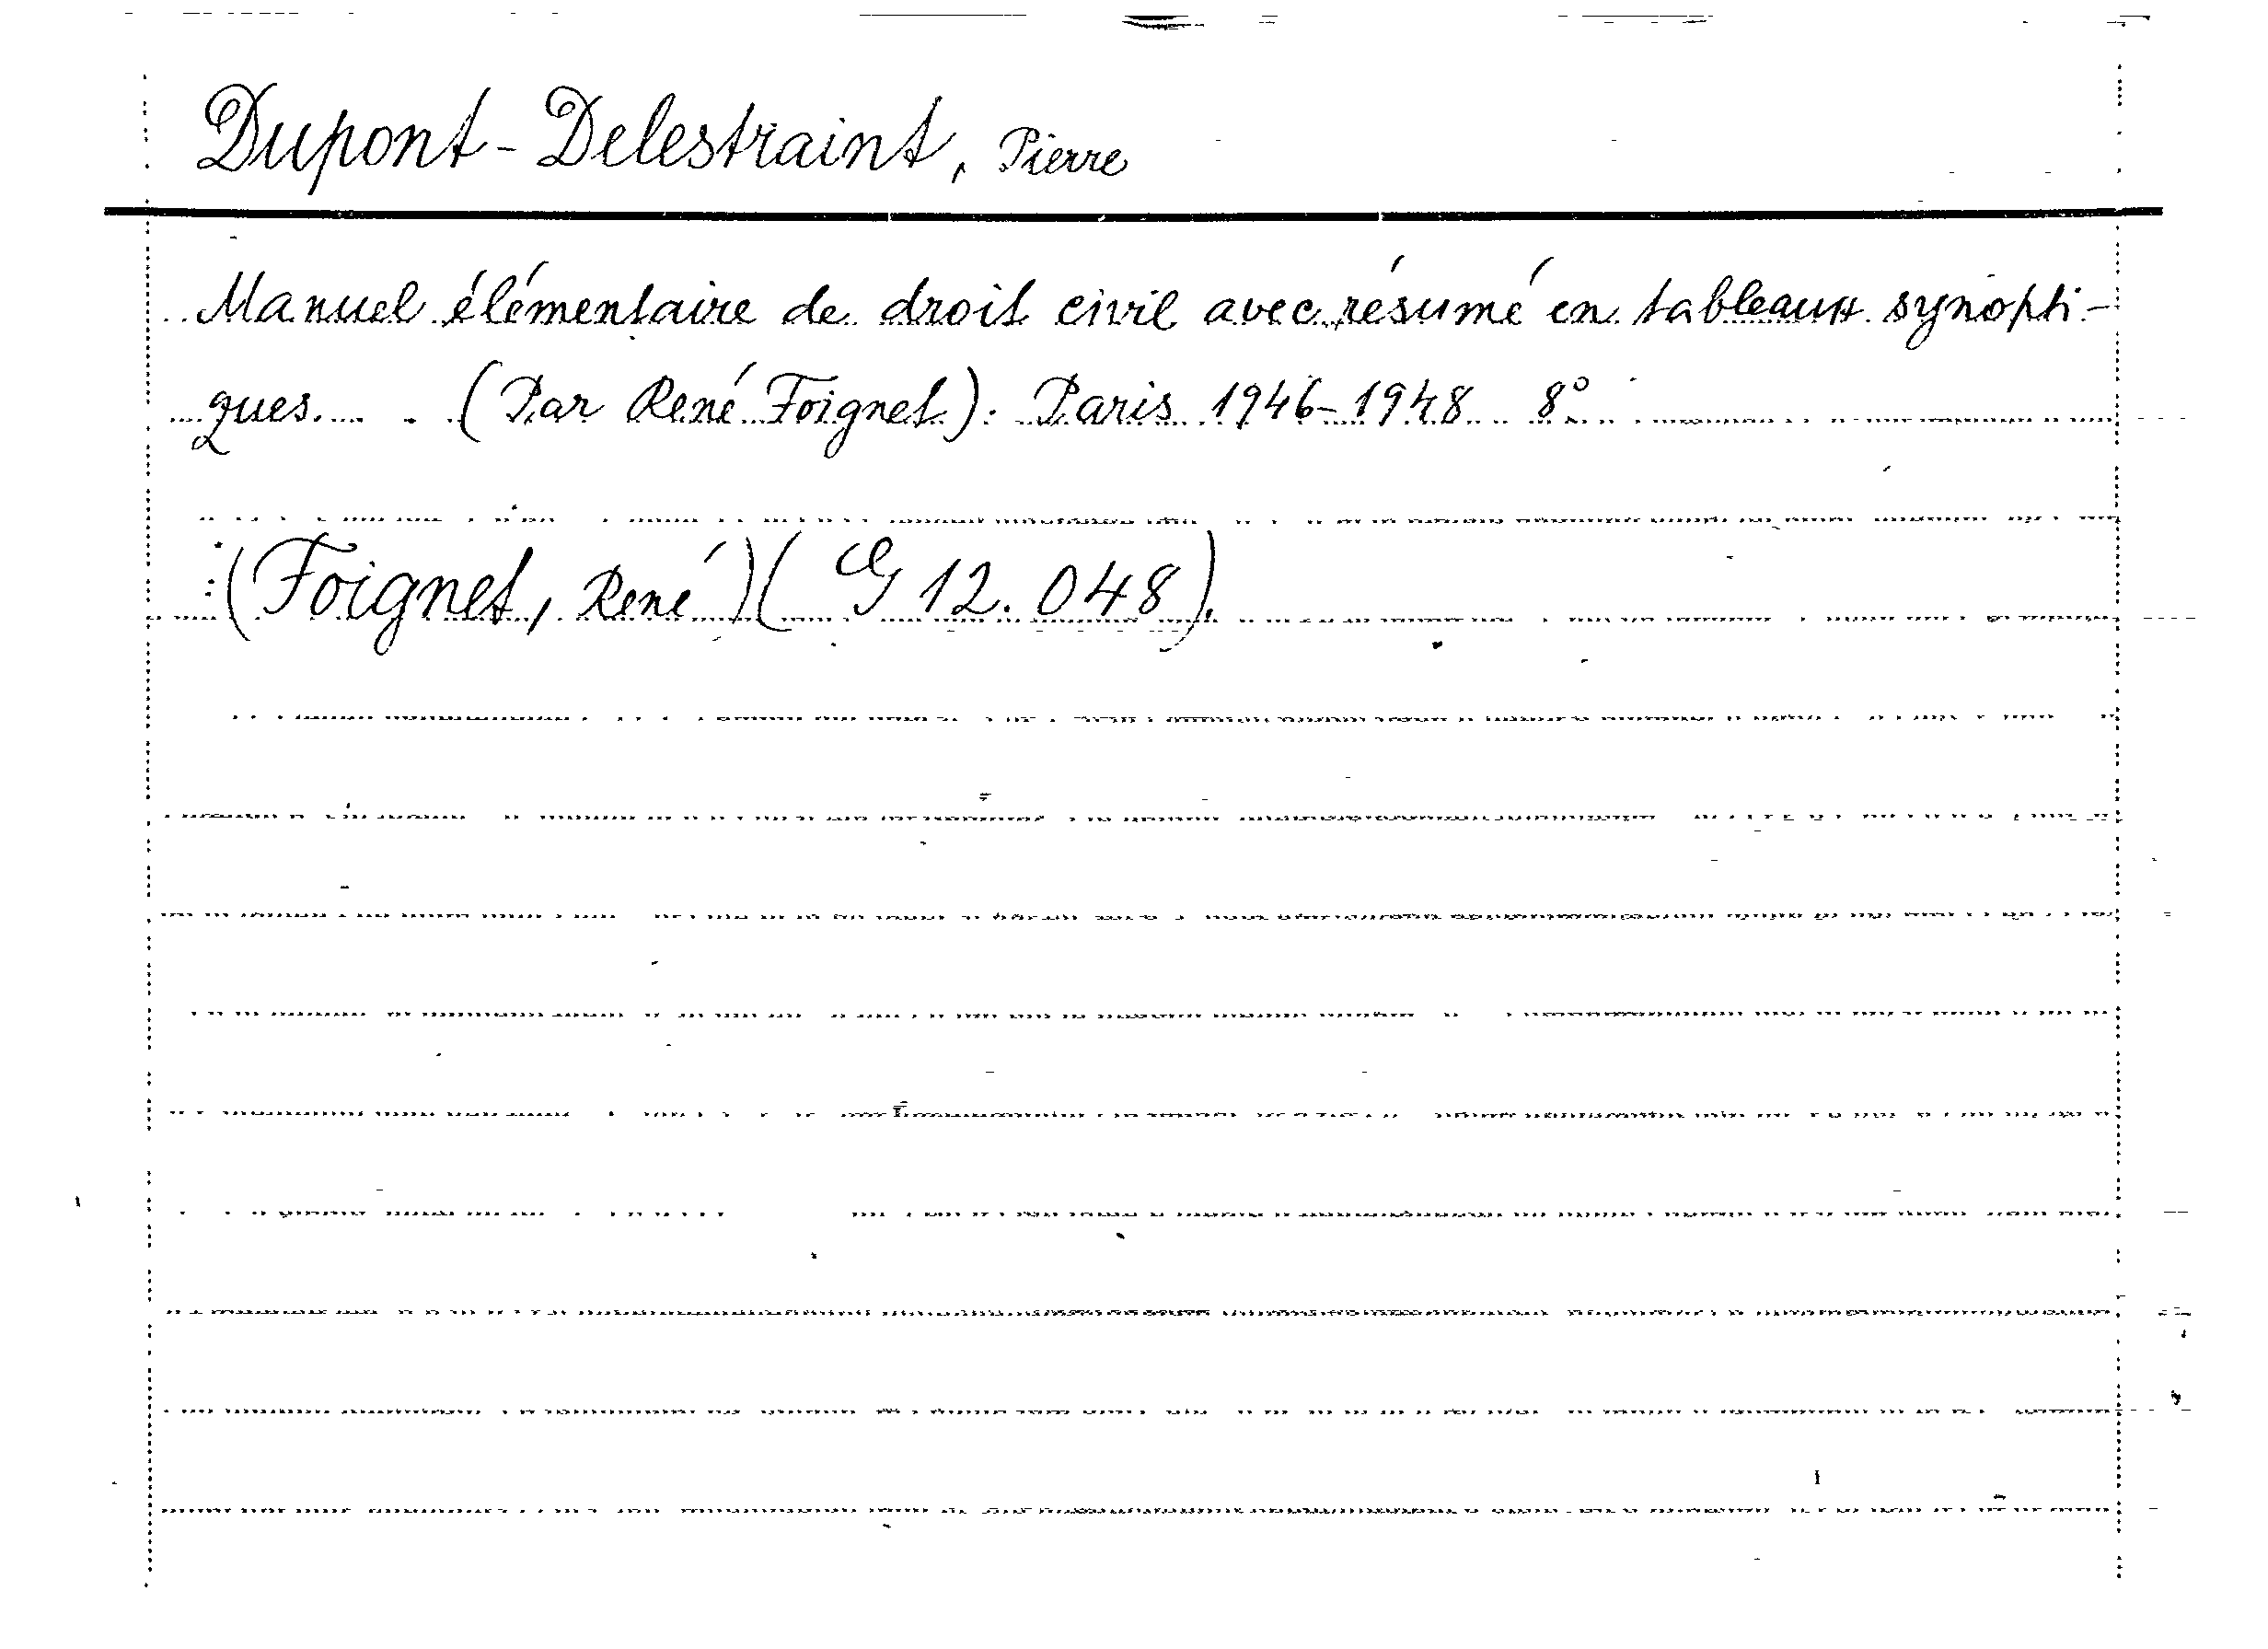 Dupont-Delestraint, Pierre
Manuel élémentaire de droit civil avec résumé en tableaux synopti-
ques. . (Par René Foignet). Paris 1946-1948 8°
(Foignet, René) (G 12.048).